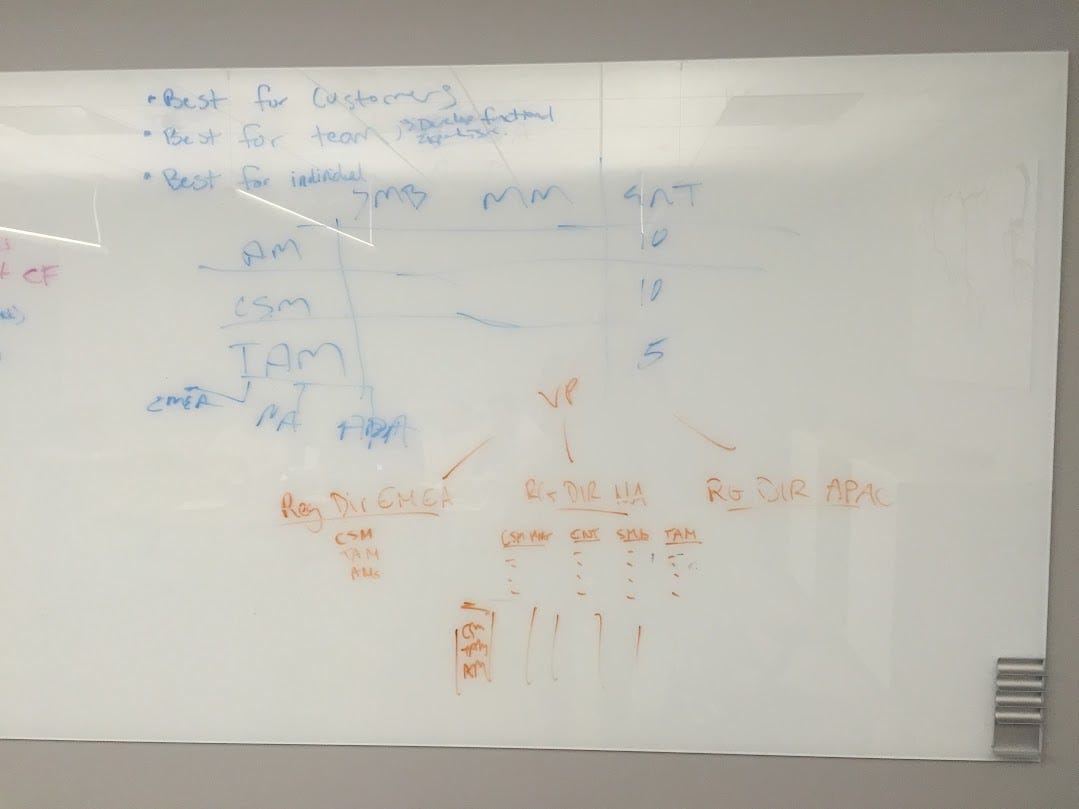 • Best for Customers
• Best for team, → Develop functional
• Best for individual
SMB MM ENT
AM 10
CSM 10
TAM 5
EMEA NA
CF
VP
Reg Dir EMEA RG DIR NA RG DIR APAC
CSM
TAM
AMs
CSM ENT SMB TAM
CSM
TAM